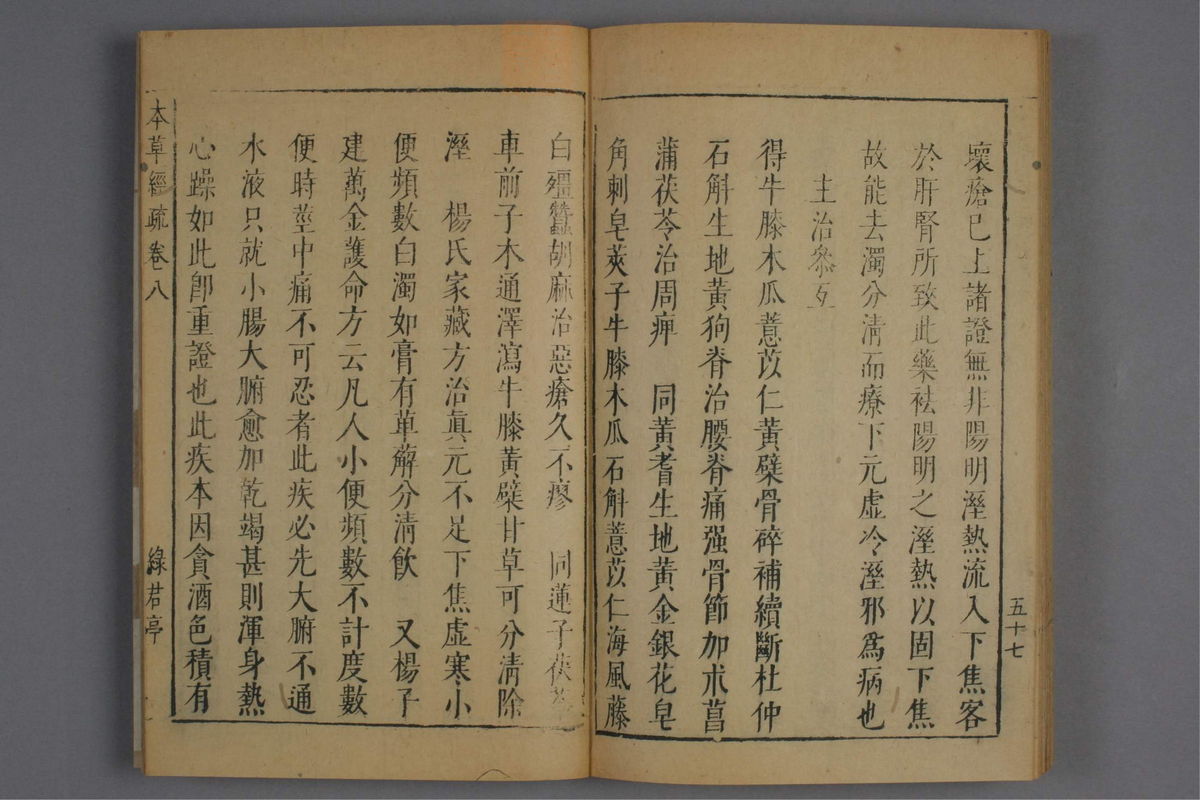 五十七
壞瘡已上諸證無非陽明溼熱流入下焦客
於肝腎所致此藥祛陽明之溼熱以固下焦
故能去濁分清而療下元虛冷溼邪爲病也
主治叅互
得牛膝木瓜薏苡仁黃檗骨碎補續斷杜仲
石斛生地黃狗脊治腰脊痛强骨節加朮菖
蒲茯苓治周痺　同黃耆生地黃金銀花皂
角刺皂莢子牛膝木瓜石斛薏苡仁海風藤
白殭蠶胡麻治惡瘡久不瘳　同蓮子茯苓
車前子木通澤瀉牛膝黃檗甘草可分清除
溼　楊氏家藏方治眞元不足下焦虛寒小
便頻數白濁如膏有萆薢分清飮　又楊子
建萬金護命方云凡人小便頻數不計度數
便時莖中痛不可忍者此疾必先大腑不通
水液只就小腸大腑愈加乾竭甚則渾身熱
心躁如此卽重證也此疾本因貪酒色積有
本草經疏卷八　綠君亭